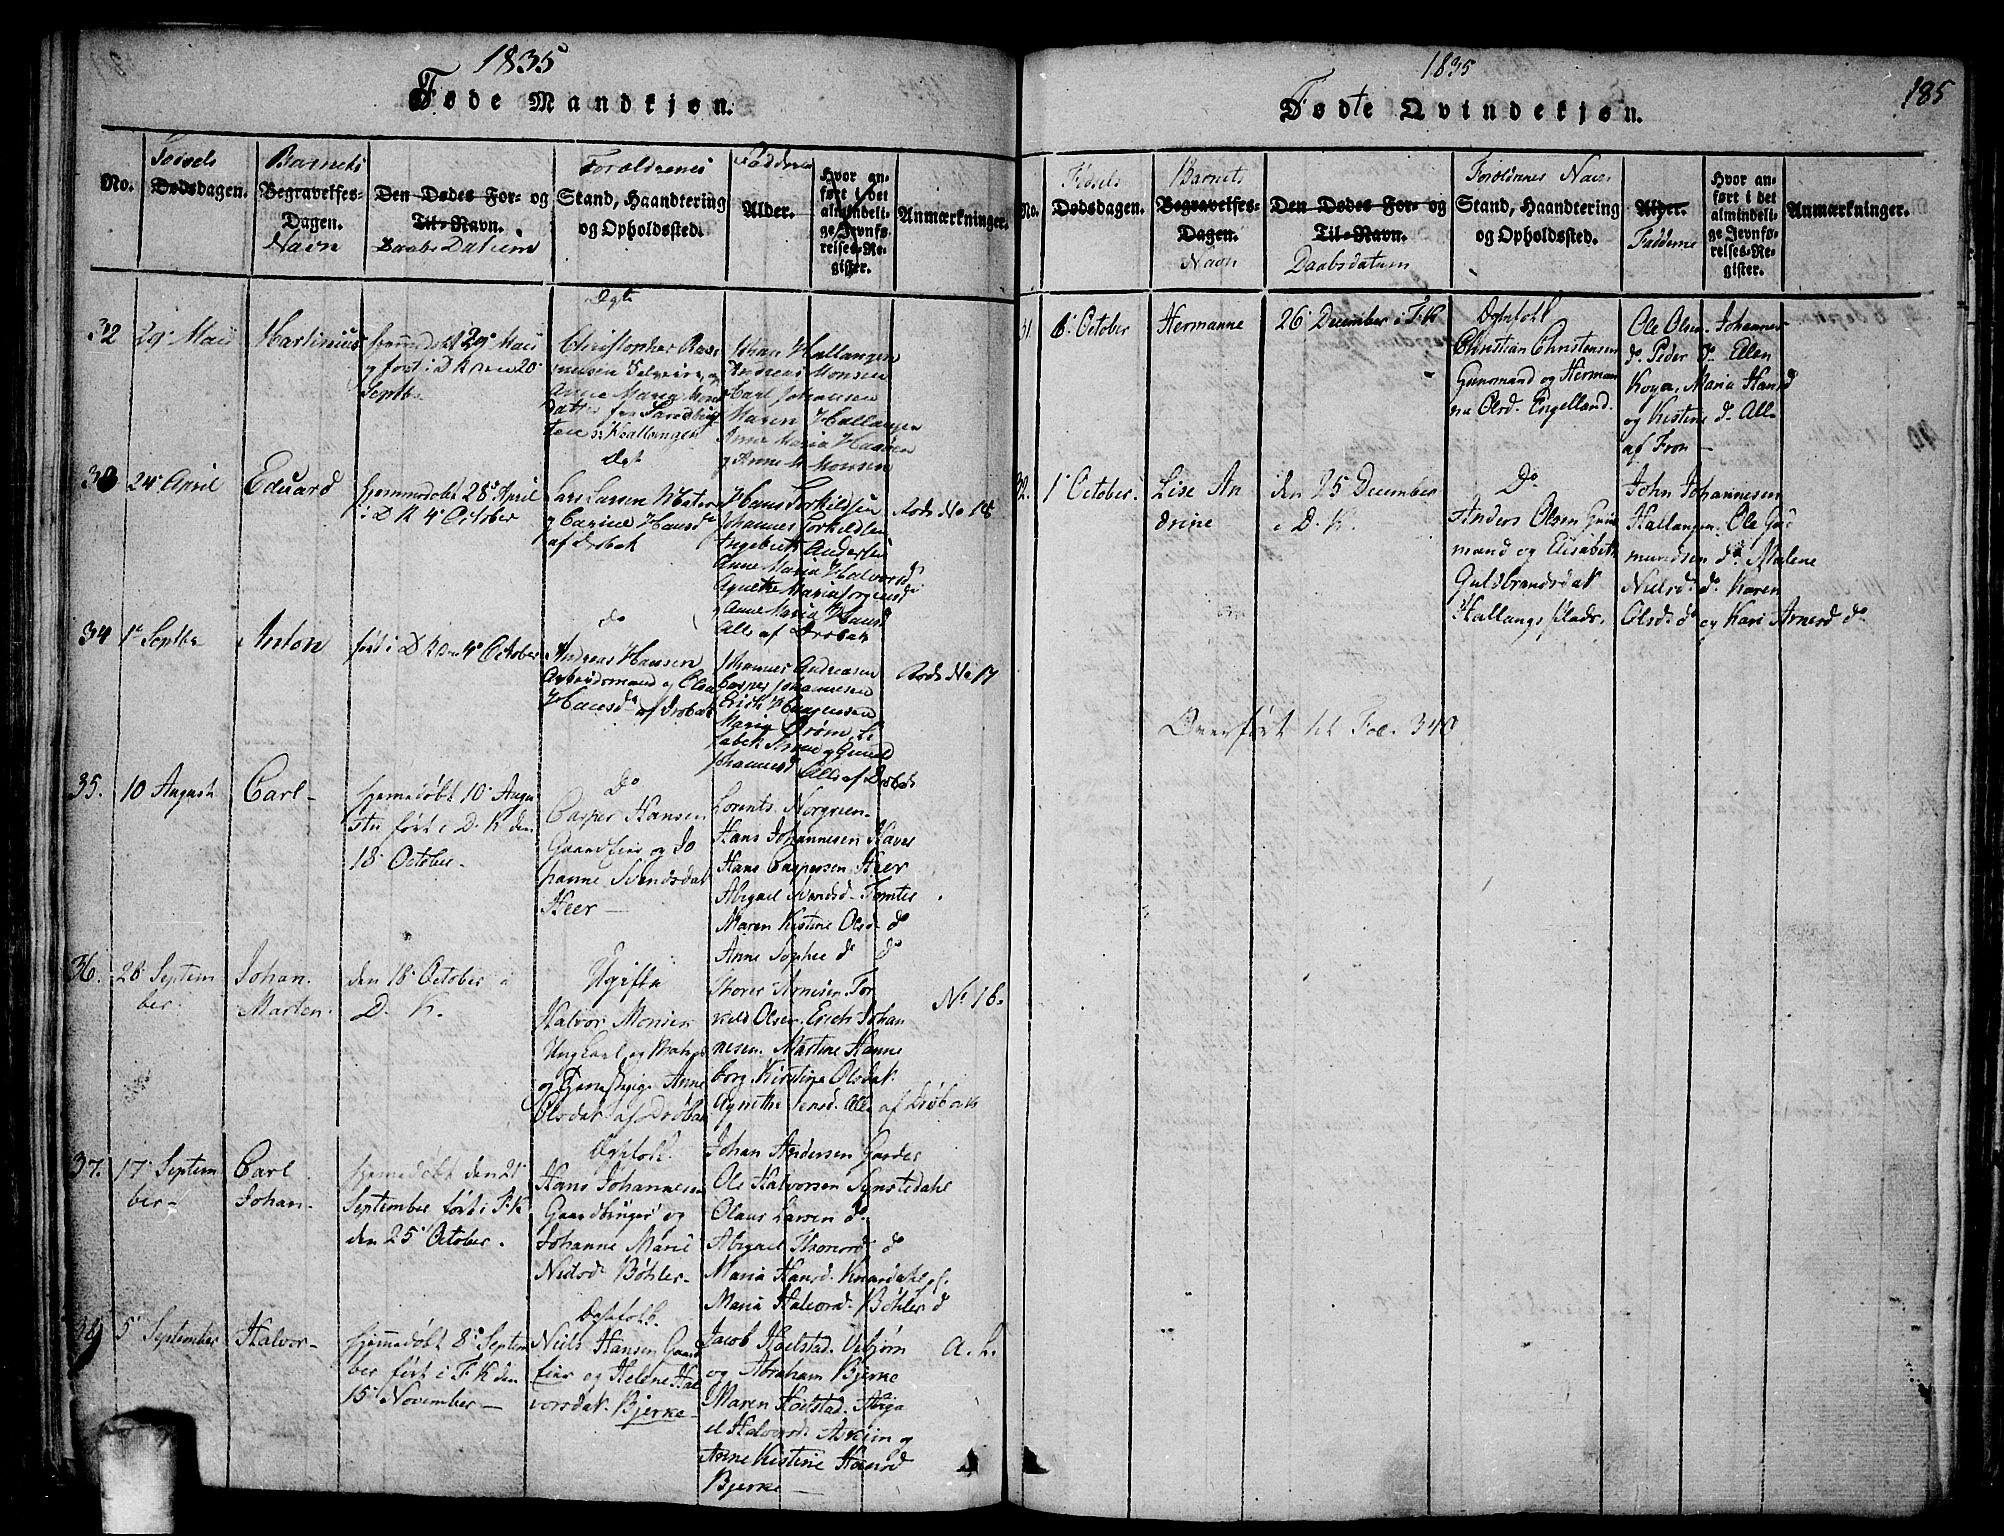 1835
Føde Mandkjøn.
No.
Fødsels
Dødsdagen.
Barnets
Begravelses-
Dagen.
Navn
Den Dødes For- og
Til-Navn.
Daabs Datum
Forældrenes
Stand, Haandtering
og Opholdssted.
Faddere
Alder.
Hvor an-
ført i det
almindeli-
ge Jevnfø-
relses-Re-
gister.
Anmærkninger.
32
29 Maii
Martinius
hjemmedøbt 29 Maii
Septbr
Ægte
Christopher Ras
Anne Marie
Hallangen
Johan Hallangen
Andreas Monsen
Carl Johansen
Maren Hallangen
Anne Maria
Anne M Monsen
33
24 April
Eduard
hjemmedøbt 28 April
i D K 4 October
Ægt
Lars Larsen Matros
og Carine Hansd
af Drøbak
Hans Torkildsen
Johannes Torkildsen
Ingebreth Andersen
Anne Maria Halvorsd
Agnethe Maria Jørgensd
og Anne Maria Hansd
Alle af Drøbak
Rods No 18
34
1 Septbr
Anton
ført i D K den 4 October
do
Andreas Hansen
Arbeidsmand og Olea
Hansd af Drøbak
Johannes Andreasen
Casper Johannesen
Erich
Maria Strøm
og Gunild
Johannesd Alle af Drøbak
Rods No 17
35.
10 August
Carl-
hjemedøbt 10 Augu
stu ført i D. K den
18 October-
Do
Casper Hansen
Gaardeier og Jo
hanne Svendsdat
Heer-
Lorents Norgreen
Hans Johannesen Haver
Hans Caspersen Heer
Abigael Svendsd- Tomter
Maren Kistine Olsd do
Anne Sophie do do
36.
26 Septem
ber-
Johan
Marten-
den 18 October i
D. K.
Ugifte
Halvor Monsen
Ungkarl og Matros
og Anne
Olsdat af Drøbak
Thorer Arnesen Tor
kild Olsen. Erich Johan
nesen. Martine Hanne
borg. Kirstine Olsdat.
Agnethe Jensd. Alle af Drøbak
No 16.
37.
17 Septem
ber-
Carl
Johan-
hjemedøbt den 21
September ført i F. K
den 25 October.
Ægtefolk.
Hans Johannesen
Gaardbruger og
Johanne Marie
Nielsd. Bøhler-
Johan Andersen Garder
Ole Halvorsen Synstedahl
Olaus Larsen do
Abigael Thorsd do
Maria Hansd. Knardahl pl.
Maria Halvorsd. Bøhler d
38
5 September
Halvor-
hjemmedøbt 8 Septem
ber ført i F. K den
15 November-
Ægtefolk.
Niels Hansen Gaard
eier og Helene Hal
vorsdat. Bjerke-
Jacob Holstad. Vebjørn
og Abraham Bjerke
Maren Holstad. Abiga
el Halvorsd. Askim og
Anne Kistine Hansd
Bjerke-
A. L.
1835
185
Fødte Qvindekjøn.
No.
Fødsels
Dødsdagen.
Barnets
Begravelses-
Dagen.
Navn
Den Dødes For- og
Til-Navn.
Daabsdatum
Forældrenes Navn
Stand, Haandtering
og Opholdssted.
Alder.
Fadderne
Hvor an-
ført i det
almindeli-
ge Jevnfø-
relses-Re-
gister.
Anmærkninger.
31.
6 October
Hermanne
26 December i F. K
Ægtefolk
Christian Christensen
Huusmand og Herman
na Olsd. Engelland.
Ole Olsen. Johannes
do. Peder do. Ellen
Maria Hansd
og Kistine do. Alle
af Fron-
32.
1 October.
Lise An
drine
den 25 December
i D. K.
Do
Anders Olsen Huus
mand og Elisabeth
Guldbrandsdat
Hallangs plads.
John Johannesen
Hallangen. Ole Gud
mundsen do. Malene
Nielsd. do. Karen
Olsd. do og Kari Arnesd do
Overført til Fol. 340